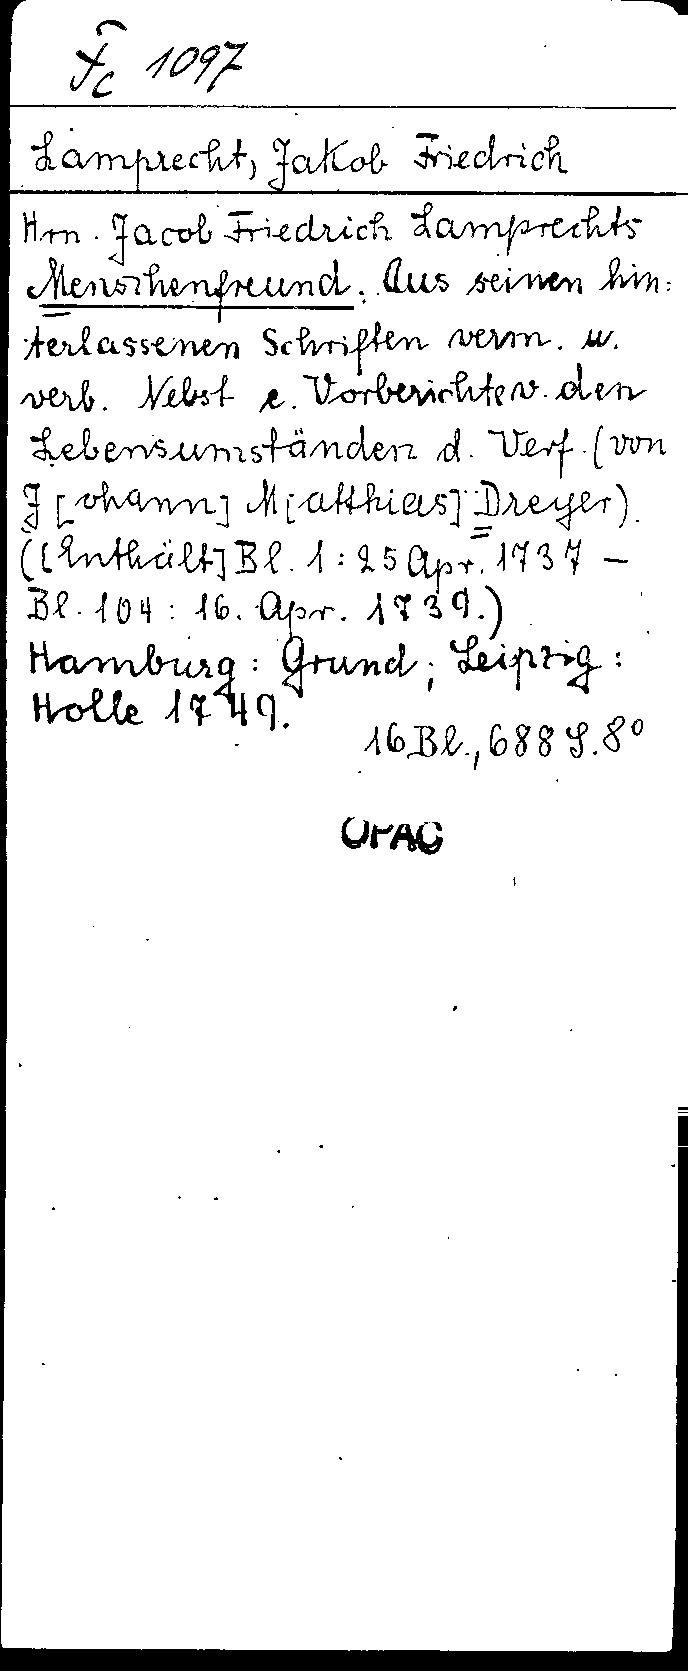 Fc 1097
Lamprecht, Jakob Friedrich
Hrn. Jacob Friedrich Lamprechts
Menschenfreund. Aus seinen hin-
terlassenen Schriften verm. u.
verb. Nebst e. Vorberichte v. den
Lebensumständen d. Verf. (von
J[ohann] M[atthias] Dreyer).
([Enthält] Bl. 1: 25 Apr. 1737 –
Bl. 104: 16. Apr. 1739.)
Hamburg: Grund; Leipzig:
Holle 1749.
16 Bl., 688 S. 8°
OPAC